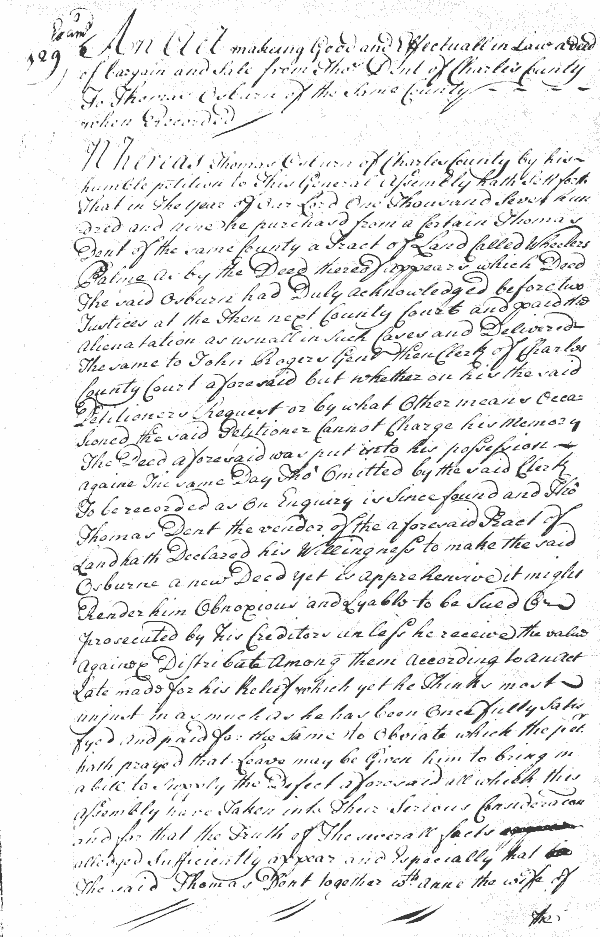 Exam.d
129
An Act making Good and Effectuall in Law a deed
of bargain and Sale from Tho.s Dent of Charles County
To Thomas Osburn of the Same County
when Recorded
Whereas Thomas Osburn of Charles County by his
humble petition to This General Assembly hath sett forth
That in The Year of Our Lord One Thousand Seven hun
dred and nine he purchased from a Certain Thomas
Dent of the same County a Tract of Land Called Wheelers
Palme as by the Deed thereof appears which Deed
The said Osburn had Duly Acknowledged before two
Justices at the Then next County Court and paid the
alienatation as usuall in Such Cases and Delivered
The same to John Rogers Gent Then Clerk of Charles
County Court aforesaid but whether on his the said
Petitioners Request or by what Other means Occa
sioned the said Petitioner Cannot Charge his Memory
The Deed aforesaid was put into his possession
againe The same Day Tho' Omitted by the said Clerk
To be recorded as On Enquiry is Since found and Tho'
Thomas Dent the vendor of the aforesaid Tract of
Land hath Declared his Willingness to make the said
Osburne a new Deed yet is apprehensive it might
Render him Obnoxious and Lyable to be Sued Or
prosecuted by his Creditors unless he receive the value
Againe Distribute Among them according to an Act
Late made for his Relief which yet he Thinks most
unjust in as much as he has been Once fully Satis
fyed and paid for the Same To Obviate which the pet.r
hath prayed that Leave may be Given him to bring in
a bill to Supply the Defect aforesaid all which this
Assembly have Taken into Their Serious Consideration
and for that the Truth of The severall facts
alledged Sufficiently appear and Especially that
The said Thomas Dent together w.th Anne the wife of
The